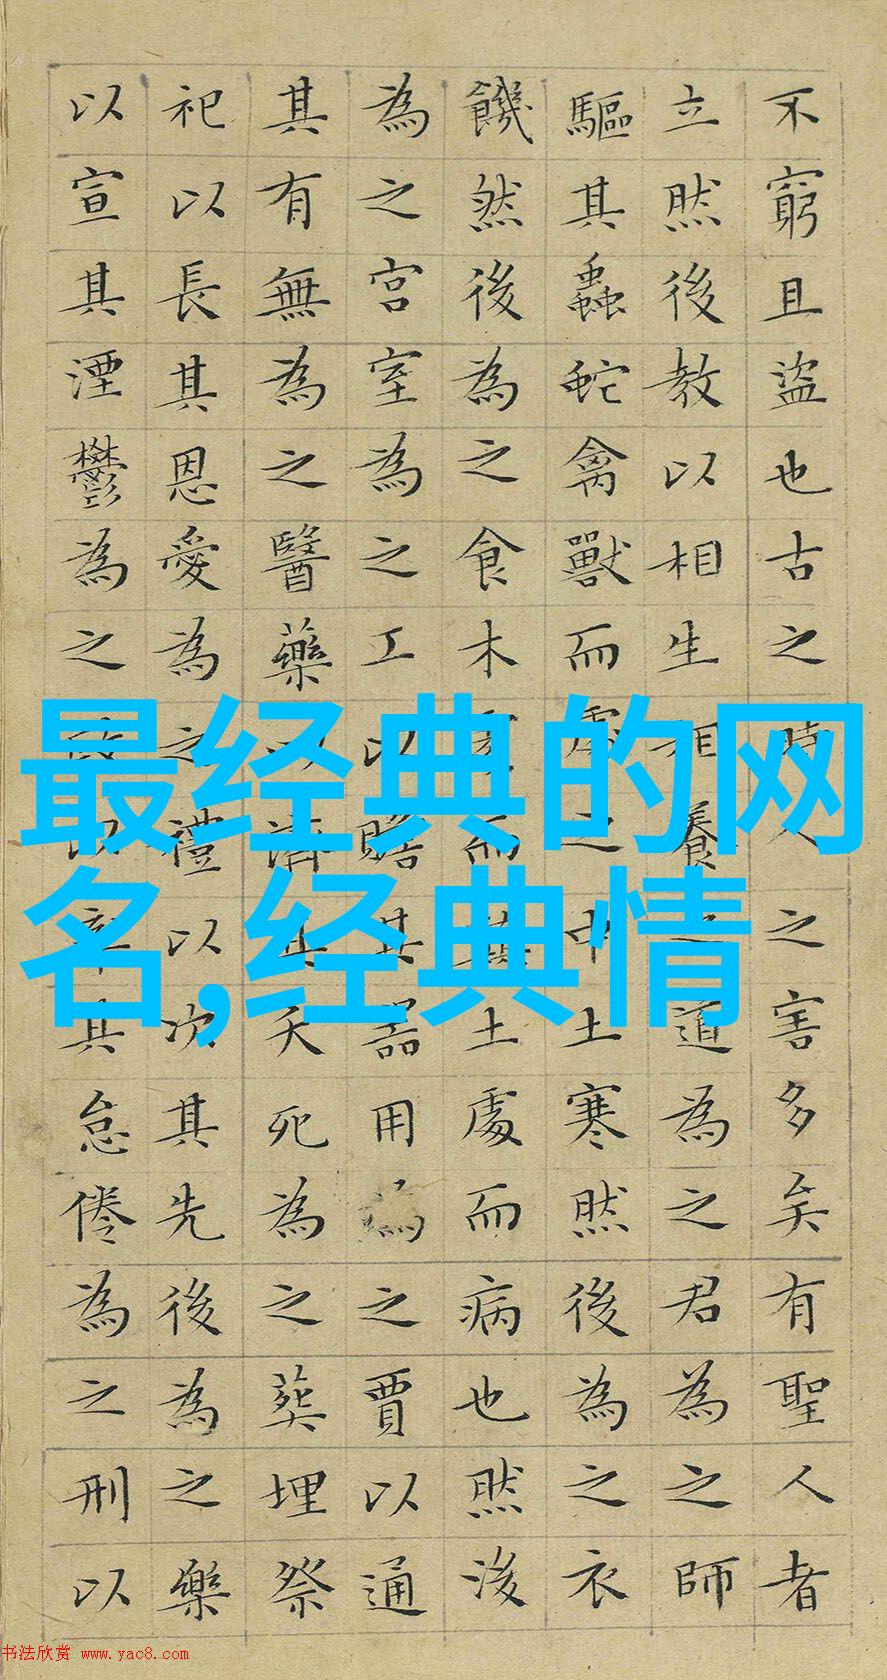 不窮且盜也古之時人之害多矣有聖人者
立然後教以相生相養之道為之君為之師
驅其蟲蛇禽獸而處之中土寒然後為之衣
饑然後為之食木處而顛土處而病也然後
為之宮室為之工以贍其器用為之賈以通
其有無為之醫藥以濟其夭死為之葬埋祭
祀以長其恩愛為之禮以次其先後為之樂
以宣其湮鬱為之政以率其怠倦為之刑以
最经典的网
名,经典情
书法欣赏 www.yac8.com